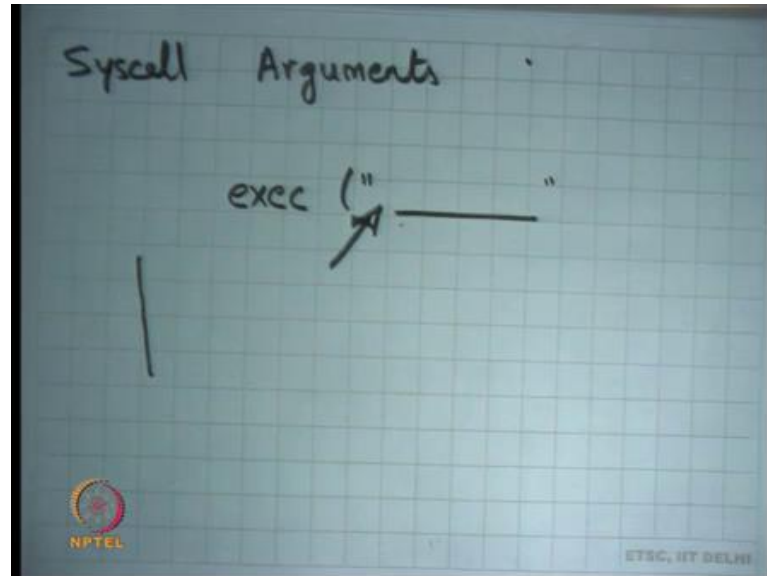 Syscall Arguments
exec ("______"
NPTEL
ETSC, IIT DELHI